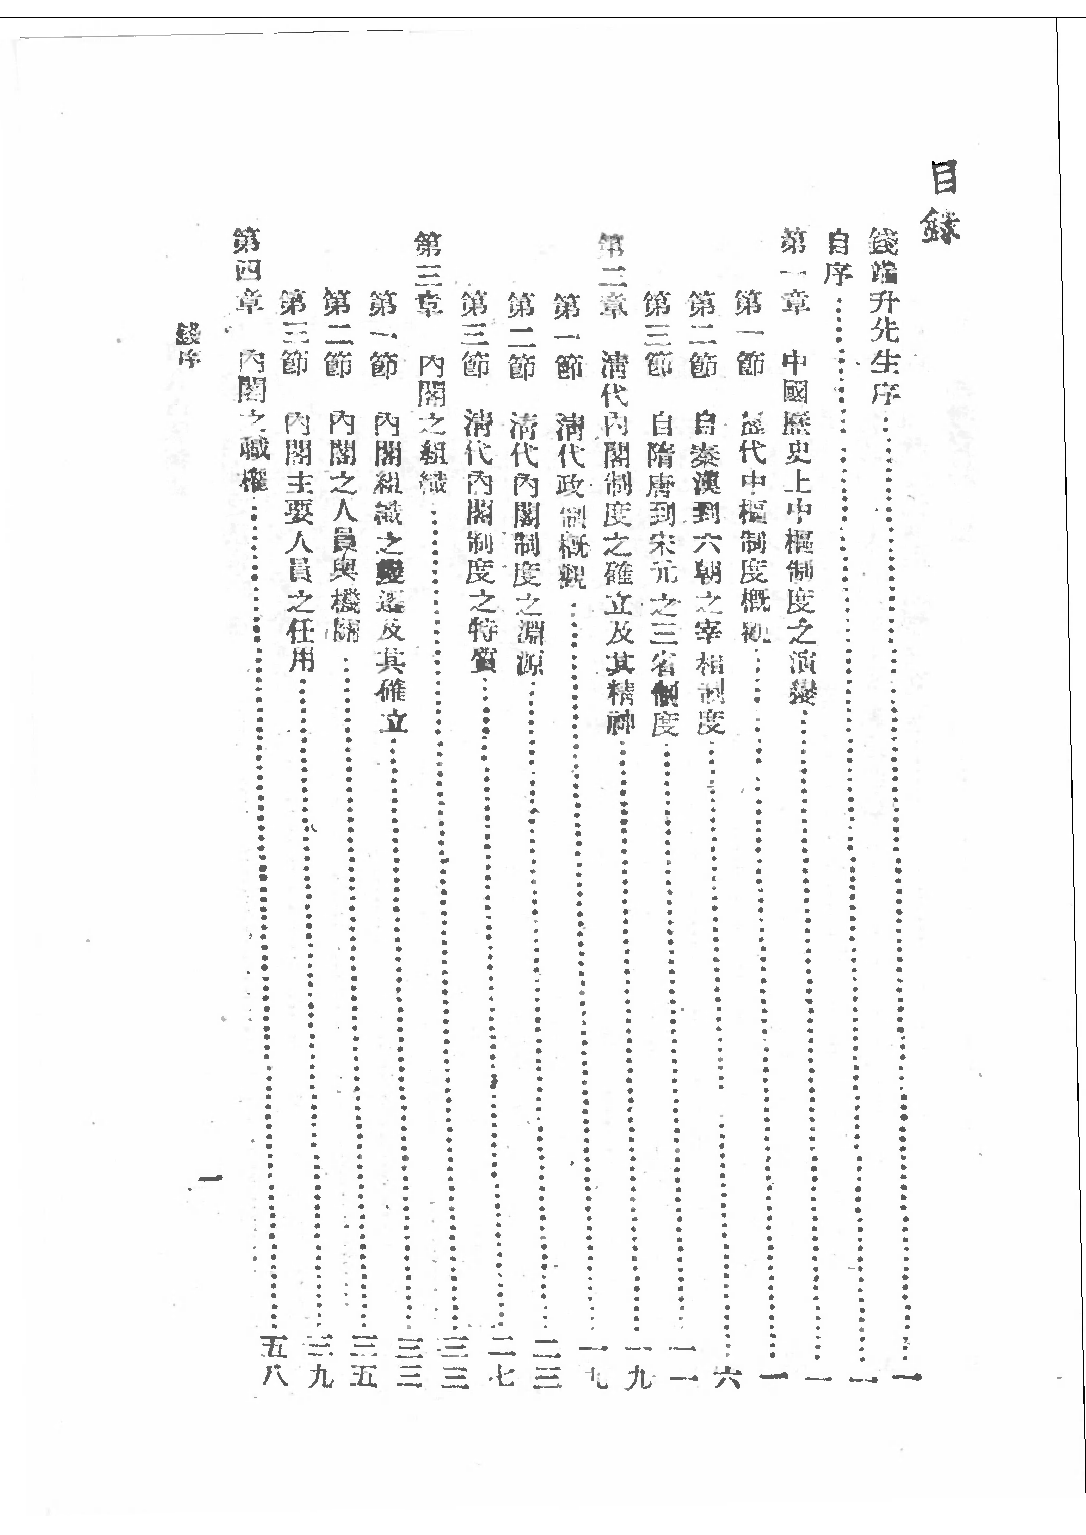 目錄
錢端升先生序……一
自序……一
第一章 中國歷史上中樞制度之演變……一
第一節 歷代中樞制度概觀……一
第二節 自秦漢到六朝之宰相制度……六
第三節 自隋唐到宋元之三省制度……一一
第二章 清代內閣制度之確立及其精神……一九
第一節 清代政制概觀……一九
第二節 清代內閣制度之淵源……二三
第三節 清代內閣制度之特質……二七
第三章 內閣之組織……三三
第一節 內閣組織之變遷及其確立……三三
第二節 內閣之人員與機關……三五
第三節 內閣主要人員之任用……三九
第四章 內閣之職權……五八
錢序
一